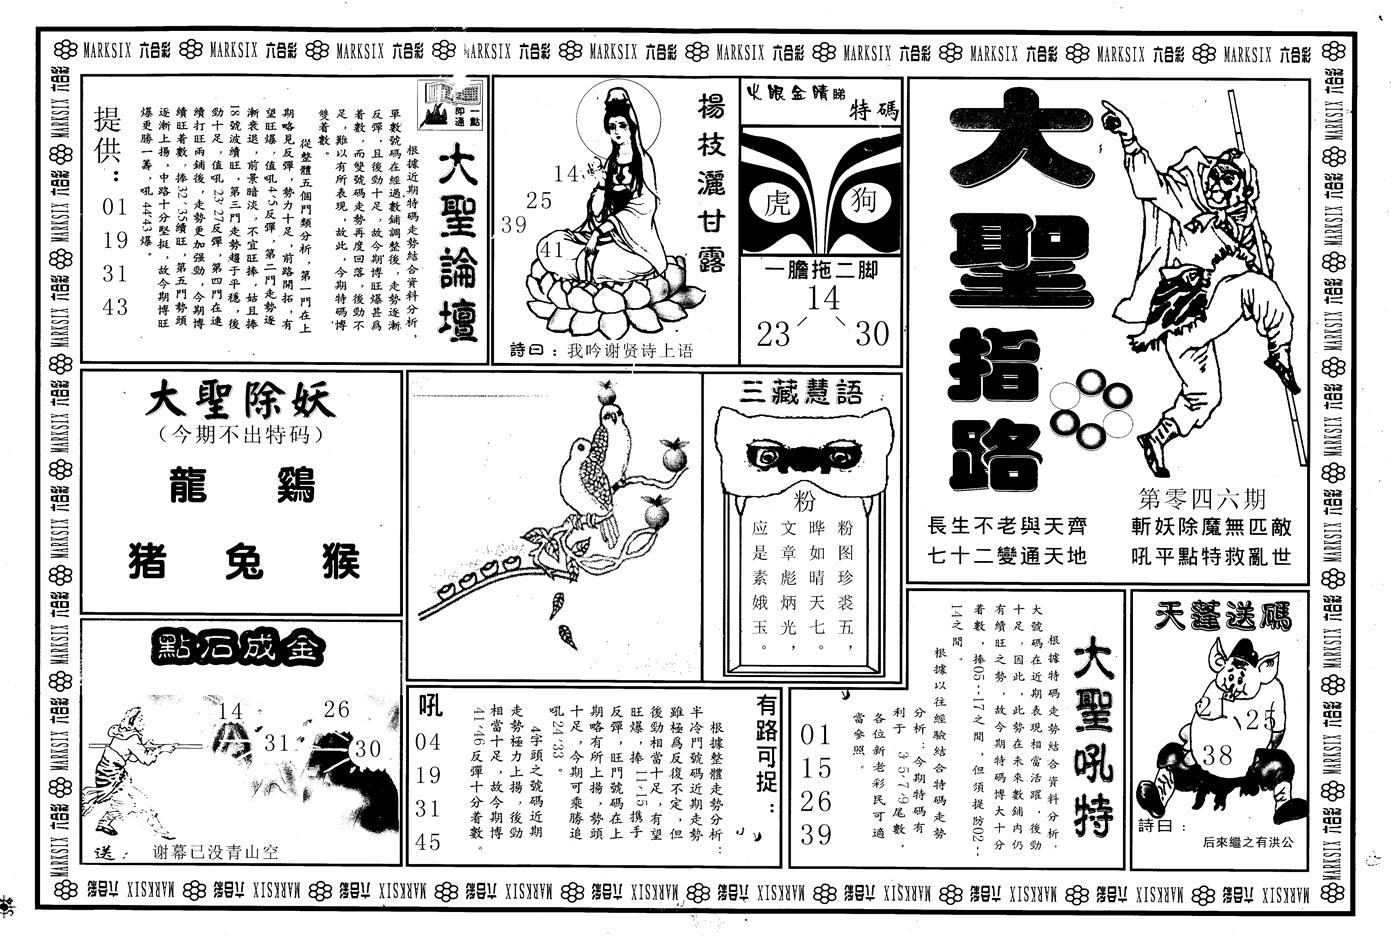 MARKSIX 六合彩 MARKSIX 六合彩 MARKSIX 六合彩 MARKSIX 六合彩 MARKSIX 六合彩 MARKSIX 六合彩 MARKSIX 六合彩 MARKSIX 六合彩 MARKSIX 六合彩 MARKSIX 六合彩
大聖指路
第零四六期
長生不老與天齊
七十二變通天地
斬妖除魔無匹敵
吼平點特救亂世
火眼金睛睇
特碼
虎
狗
一膽拖二脚
14
23
30
楊枝灑甘露
14
25
39
41
詩曰：我吟谢贤诗上语
一點即通
大聖論壇
根據近期特碼走勢結合資料分析，
單數號碼在經過數鋪調整後，走勢逐漸
反彈，且後勁十足，故今期博旺爆甚爲
着數，而雙號碼走勢再度回落，後勁不
足，難以有所表現，故此，今期特碼博
雙着數。
從整體五個門類分析，第一門在上
期略見反彈，勢力十足，前路開拓，有
望旺爆，值吼4·5反彈，第二門走勢逐
漸衰退，前景暗淡，不宜旺捧，姑且捧
18號波續旺，第三門走勢趨于平穩，後
勁十足，值吼23·27反彈，第四門在連
續打旺兩鋪後，走勢更加强勁，今期博
續旺着數，捧32·35續旺，第五門勢頭
逐漸上揚，中路十分堅挺，故今期博旺
爆更勝一籌，吼44·43爆。
提供：
01
19
31
43
大聖除妖
（今期不出特码）
龍
鷄
猪
兔
猴
三藏慧語
粉
粉图珍裘五，
晔如晴天七。
文章彪炳光，
应是素娥玉。
點石成金
14
26
31
30
送：
谢幕已没青山空
有路可捉：
根據整體走勢分析：
半冷門號碼近期走勢
雖極爲反復不定，但
後勁相當十足，有望
旺爆，捧11·15携手
反彈，旺門號碼在上
期略有所上揚，勢頭
十足，今期可乘勝追
吼24·33。
4字頭之號碼近期
走勢極力上揚，後勁
相當十足，故今期博
41·46反彈十分着數。
吼
04
19
31
45
大聖吼特
根據特碼走勢結合資料分析，
大號碼在近期表現相當活躍，後勁
十足，因此，此勢在未來數鋪內仍
有續旺之勢，故今期特碼博大十分
着數，捧05--17之間，但須提防02--
14之間。
根據以往經驗結合特碼走勢
分析：今期特碼有
利于3·5·7·9尾數，
各位新老彩民可適
當參照。
01
15
26
39
天蓬送碼
25
38
詩曰：
后來繼之有洪公